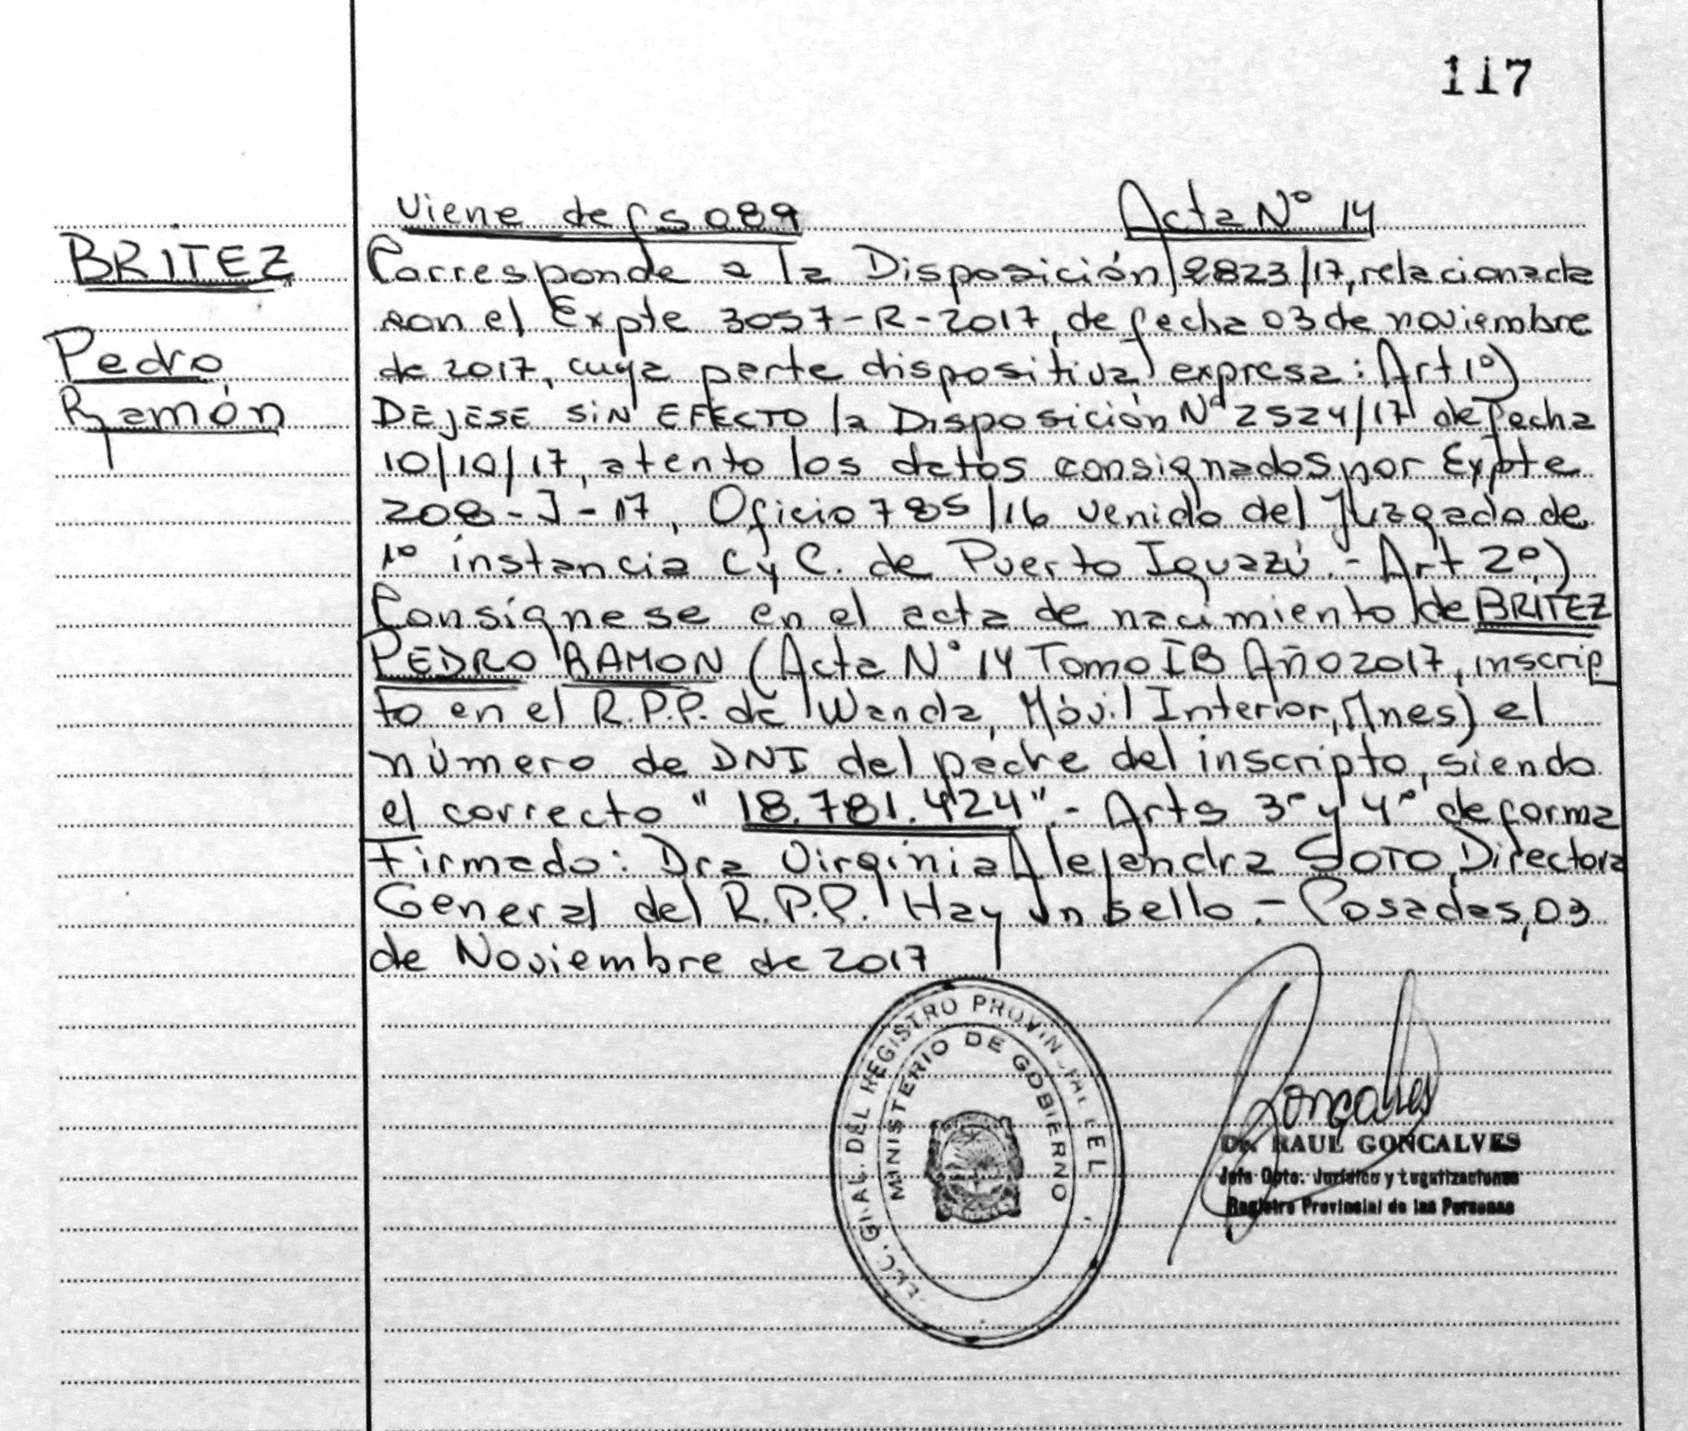 117
Viene de fs 089 Acta Nº 14
BRITEZ
Pedro
Ramón
Corresponde a la Disposición 2823/17, relacionada
con el Expte 3057-R-2017, de fecha 03 de noviembre
de 2017, cuya parte dispositiva expresa: Art 1º)
DEJESE SIN EFECTO la Disposición Nº 2524/17 de fecha
10/10/17, atento los datos consignados por Expte
208-J-17, Oficio 785/16 venido del Juzgado de
1º instancia C y C. de Puerto Iguazú.- Art 2º)
Consígnese en el acta de nacimiento de BRITEZ
PEDRO RAMON (Acta Nº 14 Tomo IB Año 2017, inscrip
to en el R.P.P. de Wanda, Móvil Interior, Mnes) el
número de DNI del padre del inscripto, siendo
el correcto "18.781.424".- Arts 3º y 4º de forma
Firmado: Dra Virginia Alejandra SOTO, Directora
General del R.P.P. Hay un sello - Posadas, 03
de Noviembre de 2017
GRAL. DEL REGISTRO PROVINCIAL DE L
MINISTERIO DE GOBIERNO
Goncalves
Dr. RAUL GONCALVES
Jefe Dpto. Jurídico y Legalizaciones
Registro Provincial de las Personas